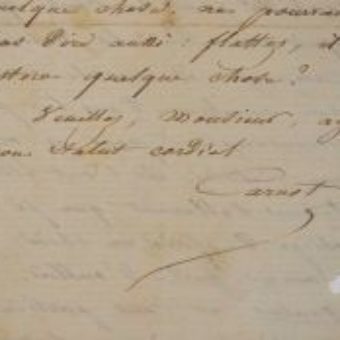 quelque chose, ne pourrai
pas dire aussi : flatter, il
quelque chose ?
Veuillez, Monsieur, ag
mon salut cordial
Carnot